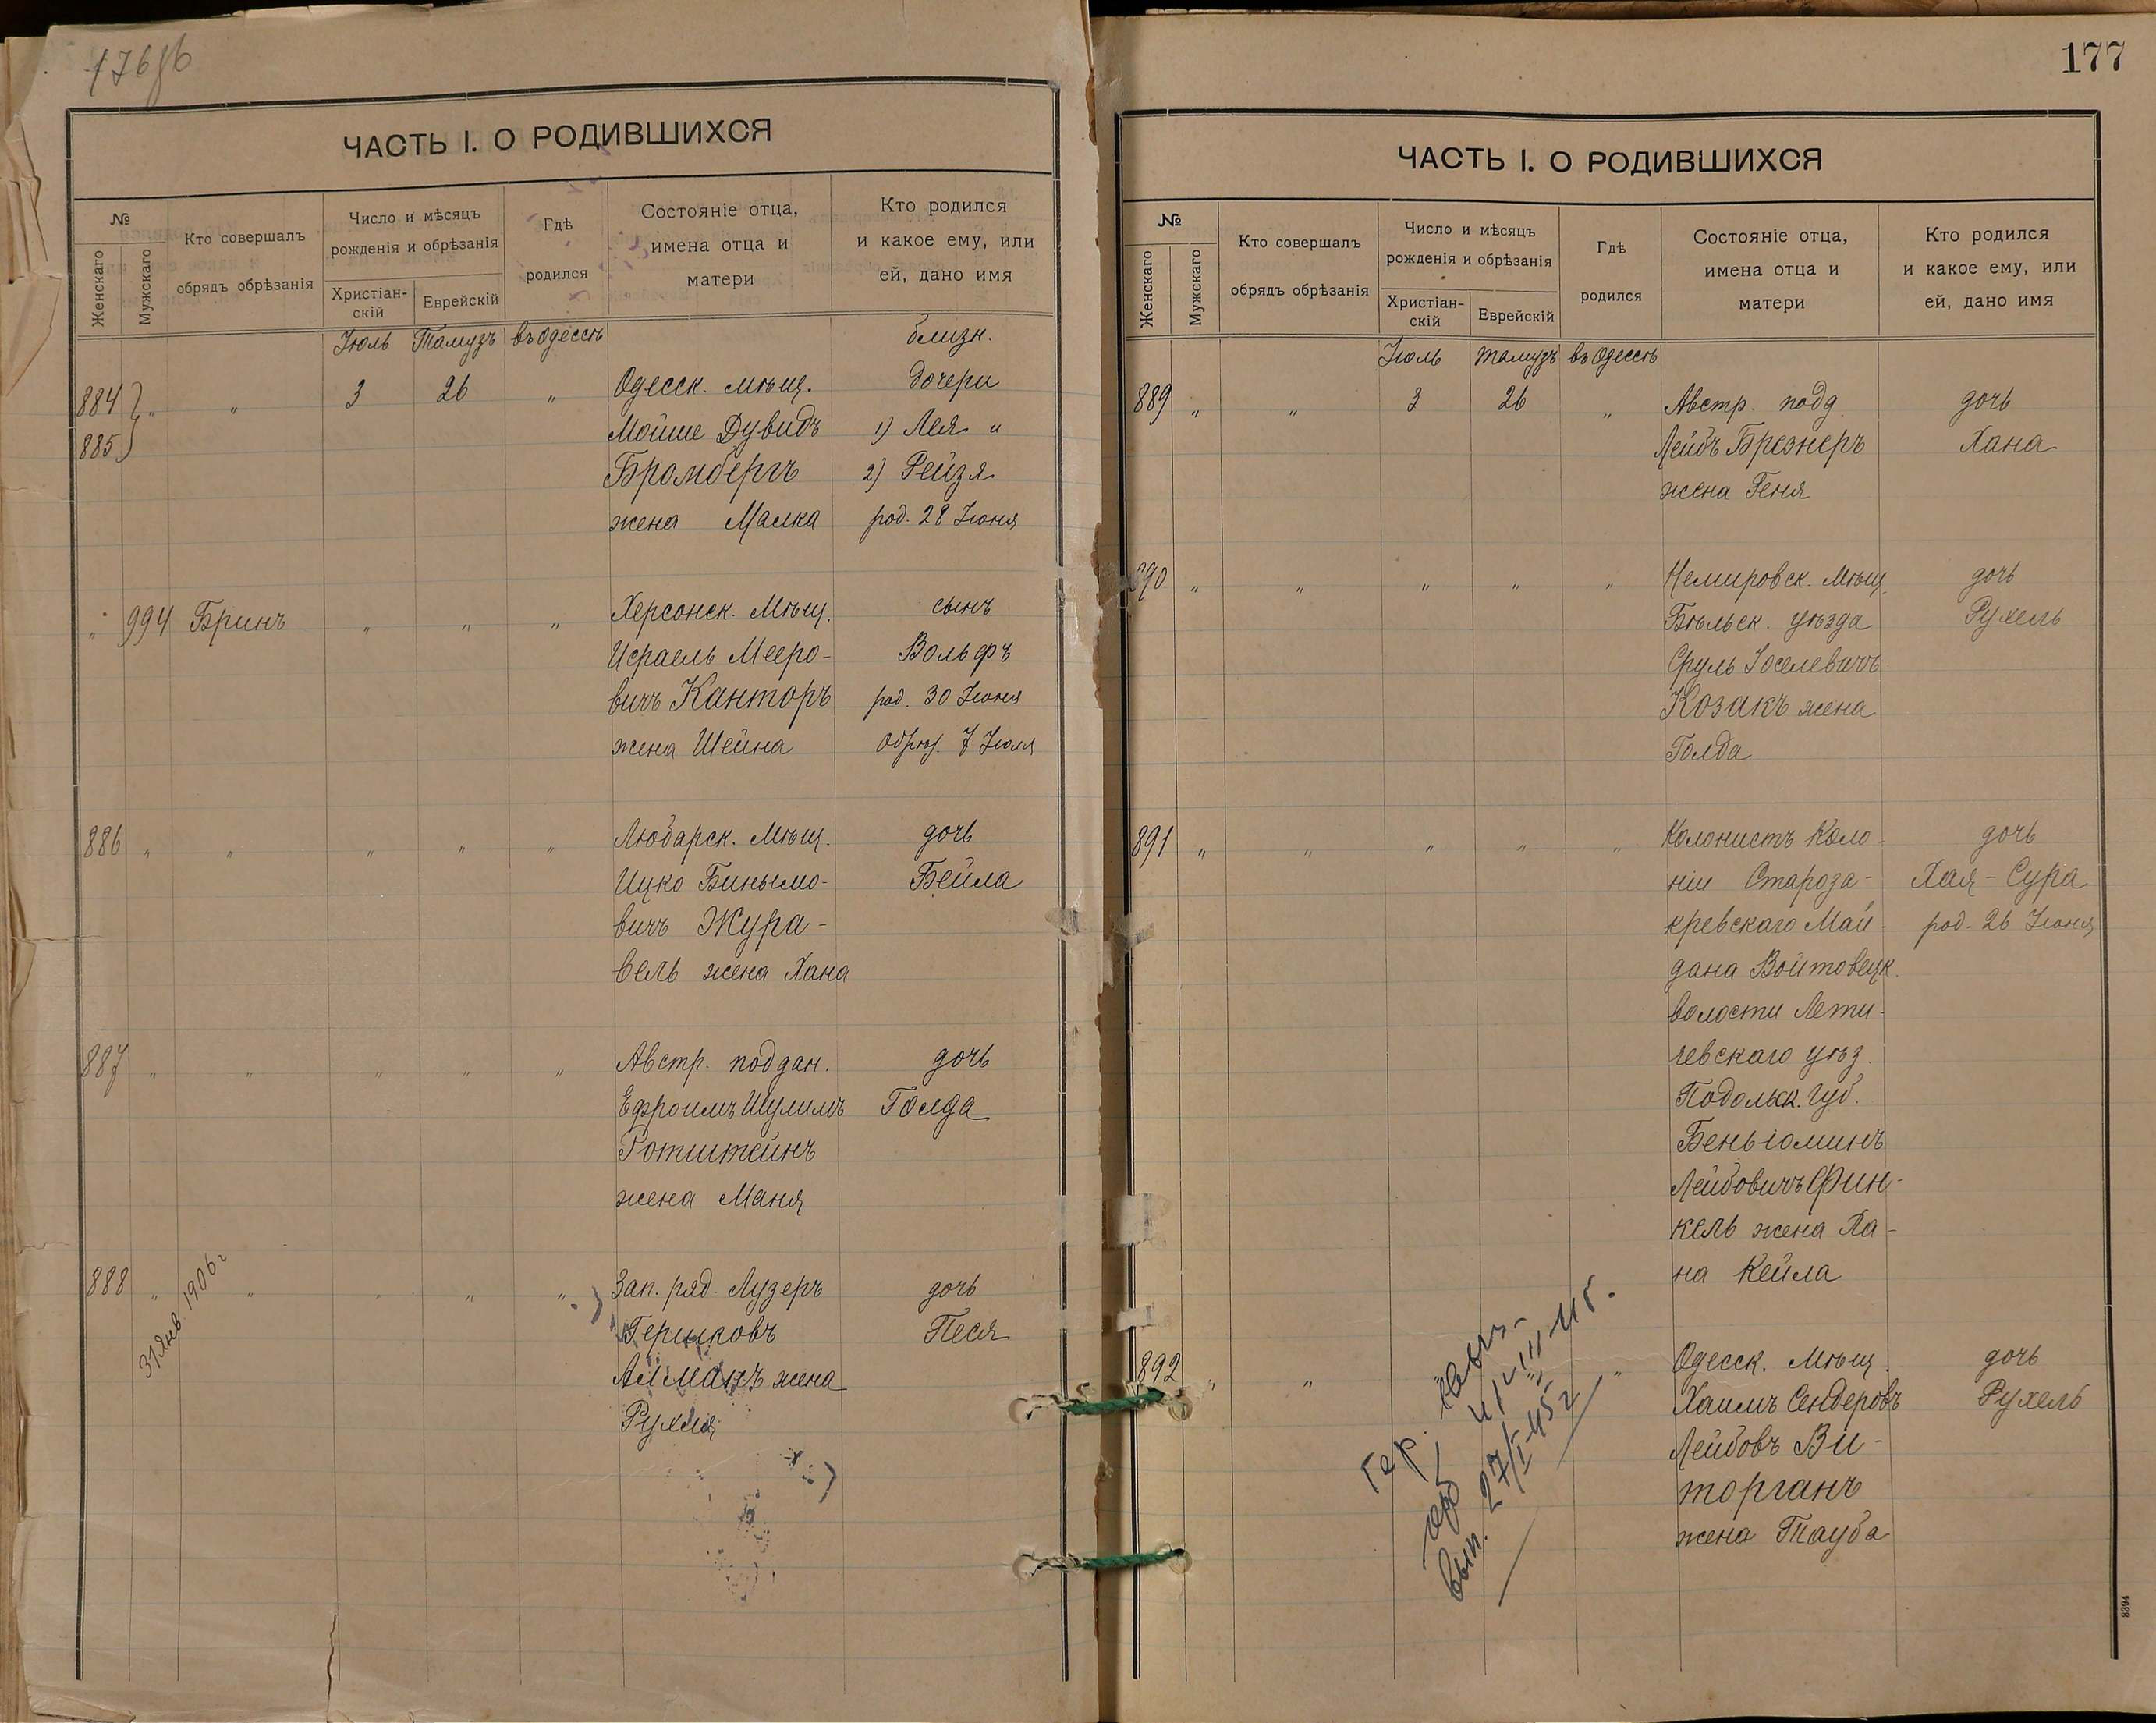 176об
ЧАСТЬ I. О РОДИВШИХСЯ
№
Женскаго
Мужскаго
Кто совершалъ
обрядъ обрѣзанія
Число и мѣсяцъ
рожденія и обрѣзанія
Христіан-
скій
Еврейскій
Гдѣ
родился
Состояніе отца,
имена отца и
матери
Кто родился
и какое ему, или
ей, дано имя
Іюль Тамузъ въ Одессѣ близн.
884 " " 3 26 " Одесск. мѣщ. дочери
885 Мойше Дувидъ 1) Лея "
Бромбергъ 2) Рейзя
жена Малка род. 28 Іюня
" 994 Бринъ " " " Херсонск. Мѣщ. сынъ
Исраель Мееро- Вольфъ
вичъ Канторъ род. 30 Іюня
жена Шейна Обрѣз. 7 Іюля
886 " " " " " Любарск. Мѣщ. дочь
Ицко Бинымо- Бейла
вичъ Жура-
вель жена Хана
887 " " " " " Австр. поддан. дочь
Ефроимъ Шулимъ Голда
Ротштейнъ
жена Маня
888 " " " " " Зап. ряд. Лузеръ дочь
Гершковъ Песя
Алманъ жена
Рухля
31 Янв. 1906 г
177
ЧАСТЬ I. О РОДИВШИХСЯ
№
Женскаго
Мужскаго
Кто совершалъ
обрядъ обрѣзанія
Число и мѣсяцъ
рожденія и обрѣзанія
Христіан-
скій
Еврейскій
Гдѣ
родился
Состояніе отца,
имена отца и
матери
Кто родился
и какое ему, или
ей, дано имя
Іюль тамузъ въ Одессѣ
889 " " 3 26 " Австр. подд. дочь
Лейбъ Брезнеръ Хана
жена Геня
890 " " " " " Немировск. Мѣщ. дочь
Бѣльск. уѣзда Рухель
Сруль Іоселевичъ
Козакъ жена
Голда
891 " " " " " Колонистъ Коло- дочь
ніи Староза- Хая-Сура
кревскаго Май- род. 26 Іюня
дана Войтовецк.
волости Лети-
чевскаго уѣз.
Подольск. Губ.
Беньіоминъ
Лейбовичъ Фин-
кель жена Ха-
на Кейла
892 " " " " " Одесск. Мѣщ. дочь
Хаимъ Сендеровъ Рухель
Лейбовъ Ви-
торганъ
жена Тауба
вып. 27/I-45 г
8394